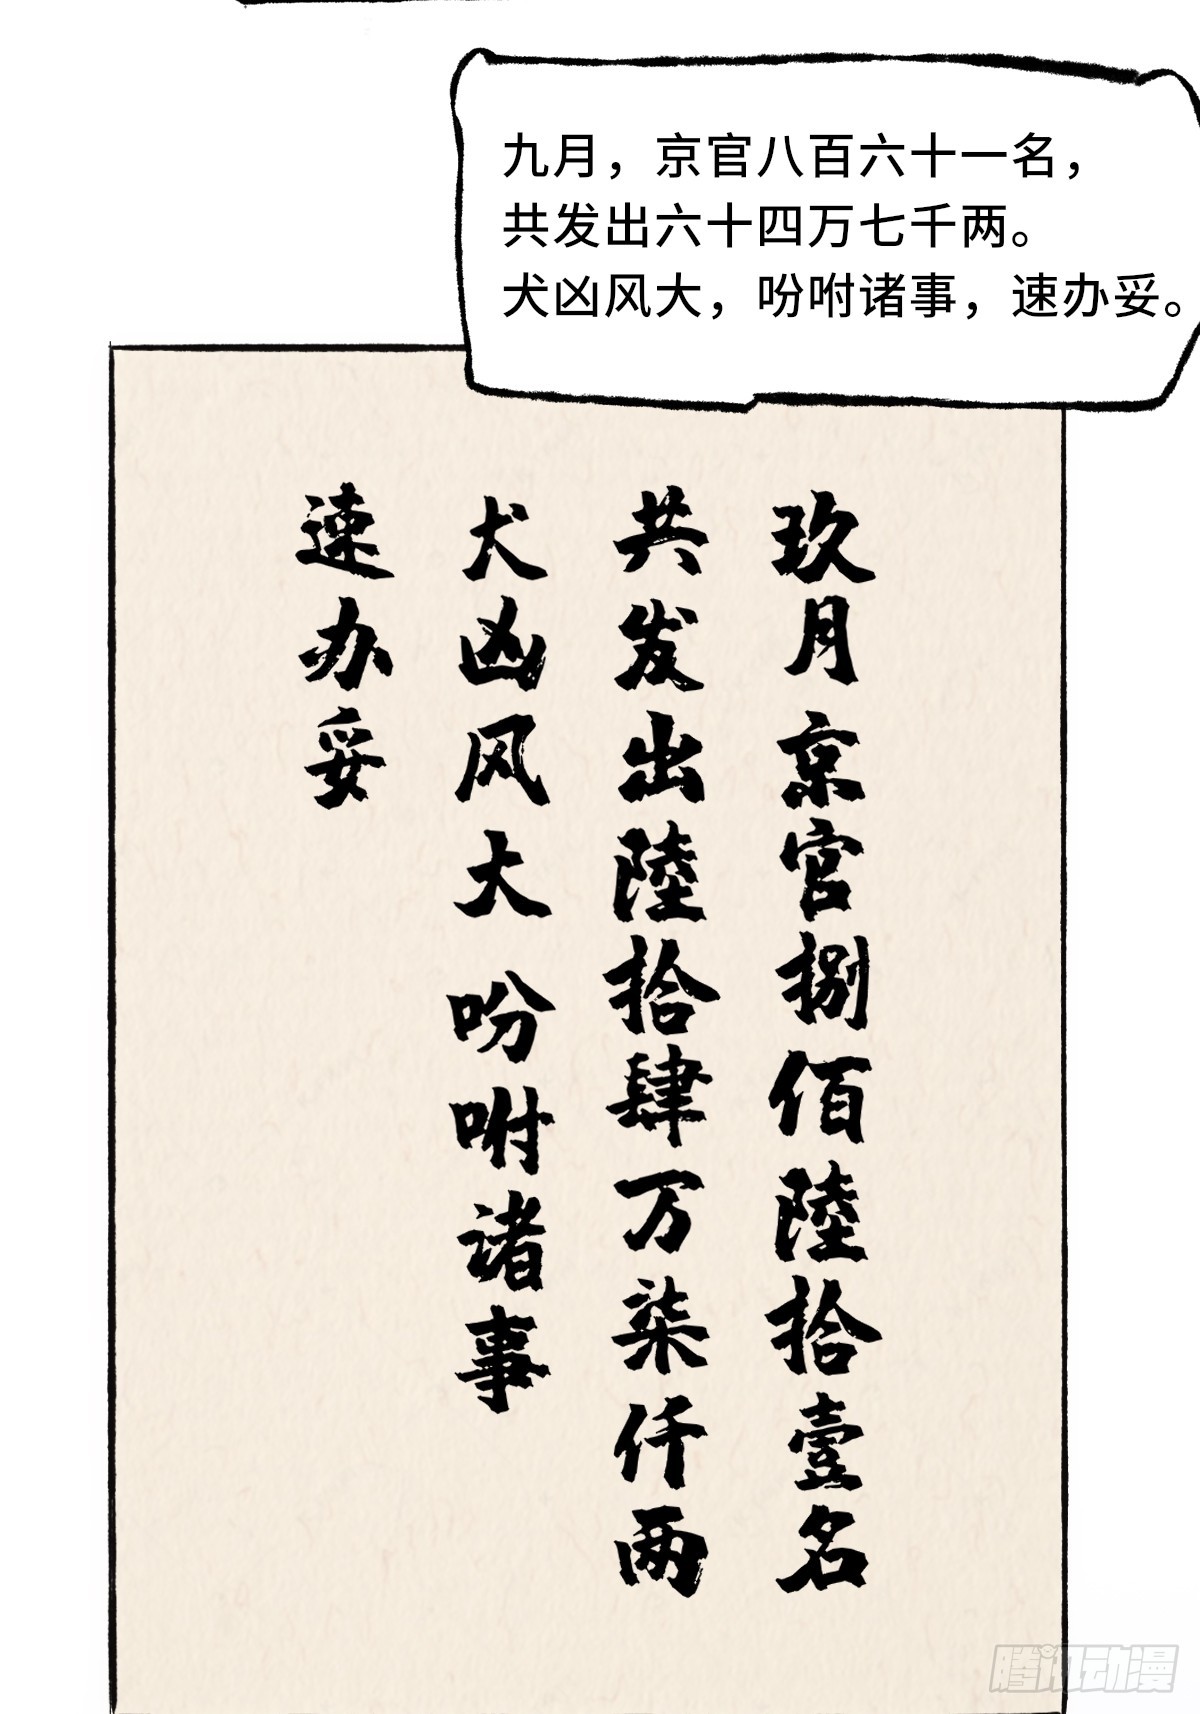 九月，京官八百六十一名，
共发出六十四万七千两。
犬凶风大，吩咐诸事，速办妥。
玖月京官捌佰陸拾壹名
共发出陸拾肆万柒仟两
犬凶风大吩咐诸事
速办妥
腾讯动漫